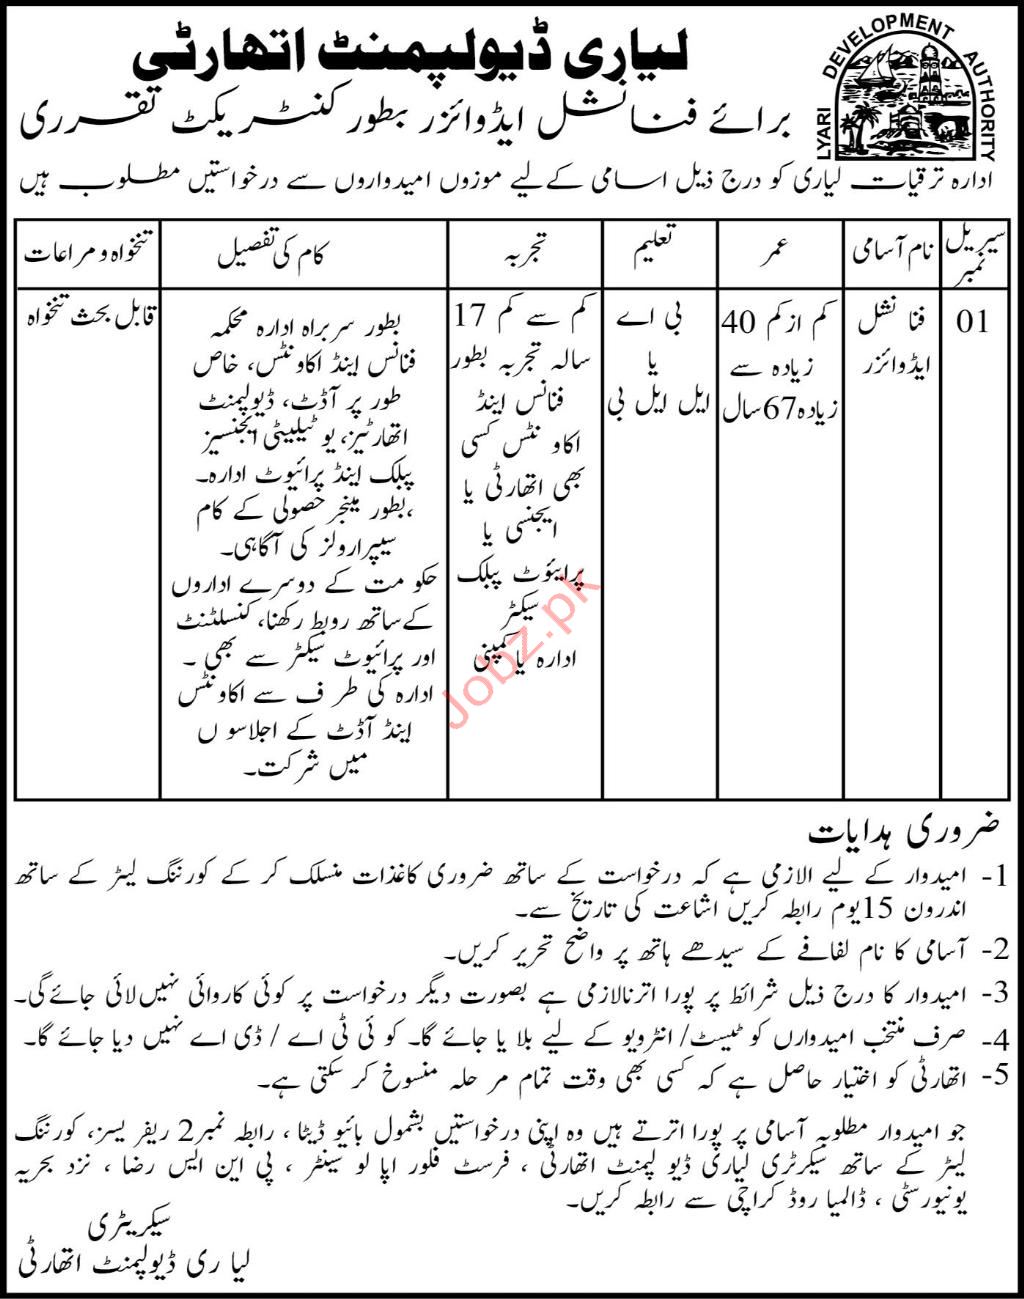 لیاری ڈیولپمنٹ اتھارٹی
LYARI DEVELOPMENT AUTHORITY
برائے فنانشل ایڈوائزر بطور کنٹریکٹ تقرری
ادارہ ترقیات لیاری کو درج ذیل اسامی کےلیے موزوں امیدواروں سے درخواستیں مطلوب ہیں
سیریل نمبر
نام آسامی
عمر
تعلیم
تجربہ
کام کی تفصیل
تنخواہ و مراعات
01
فنانشل
ایڈوائزر
کم از کم 40
زیادہ سے
زیادہ 67 سال
بی اے
یا
ایل ایل بی
کم سے کم 17
سالہ تجربہ بطور
فنانس اینڈ
اکاونٹس کسی
بھی اتھارٹی یا
ایجنسی یا
پرایئوٹ پبلک
سیکٹر
ادارہ یا کمپنی
بطور سربراہ ادارہ محکمہ
فنانس اینڈ اکاونٹس، خاص
طور پر آڈٹ، ڈیولپمنٹ
اتھارٹیز، یوٹیلیٹی ایجنسیز
پبلک اینڈ پرائیوٹ ادارہ۔
،بطور مینجر حصولی کے کام
سیپرارولز کی آگاہی۔
حکومت کے دوسرے اداروں
کےساتھ روبط رکھنا، کنسلٹنٹ
اور پرائیوٹ سیکٹر سے بھی۔
ادارہ کی طرف سے اکاونٹس
اینڈ آڈٹ کے اجلاسوں
میں شرکت۔
قابل بحث تنخواہ
Jobz.pk
ضروری ہدایات
1- امیدوار کے لیے الازمی ہے کہ درخواست کے ساتھ ضروری کاغذات منسلک کر کے کورننگ لیٹر کے ساتھ
اندرون 15یوم رابطہ کریں اشاعت کی تاریخ سے۔
2- آسامی کا نام لفافے کے سیدھے ہاتھ پر واضح تحریر کریں۔
3- امیدوار کا درج ذیل شرائط پر پورا اترنالازمی ہے بصورت دیگر درخواست پر کوئی کاروائی نہیں لائی جائےگی۔
4- صرف منتخب امیدوارں کو ٹیسٹ/ انٹرویو کے لیے بلا یا جائے گا۔ کوئی ٹی اے / ڈی اے نہیں دیا جائے گا۔
5- اتھارٹی کو اختیار حاصل ہے کہ کسی بھی وقت تمام مرحلہ منسوخ کر سکتی ہے۔
جو امیدوار مطلوبہ آسامی پر پورا اترتے ہیں وہ اپنی درخواستیں بشمول بائیو ڈیٹا ، رابطہ نمبر2 ریفریسز، کورننگ
لیٹر کے ساتھ سیکرٹری لیاری ڈیولپمنٹ اتھارٹی ، فرسٹ فلور اپالو سینٹر ، پی این ایس رضا ، نزد بحریہ
یونیورسٹی ، ڈالمیا روڈ کراچی سے رابطہ کریں۔
سیکریٹری
لیاری ڈیولپمنٹ اتھارٹی